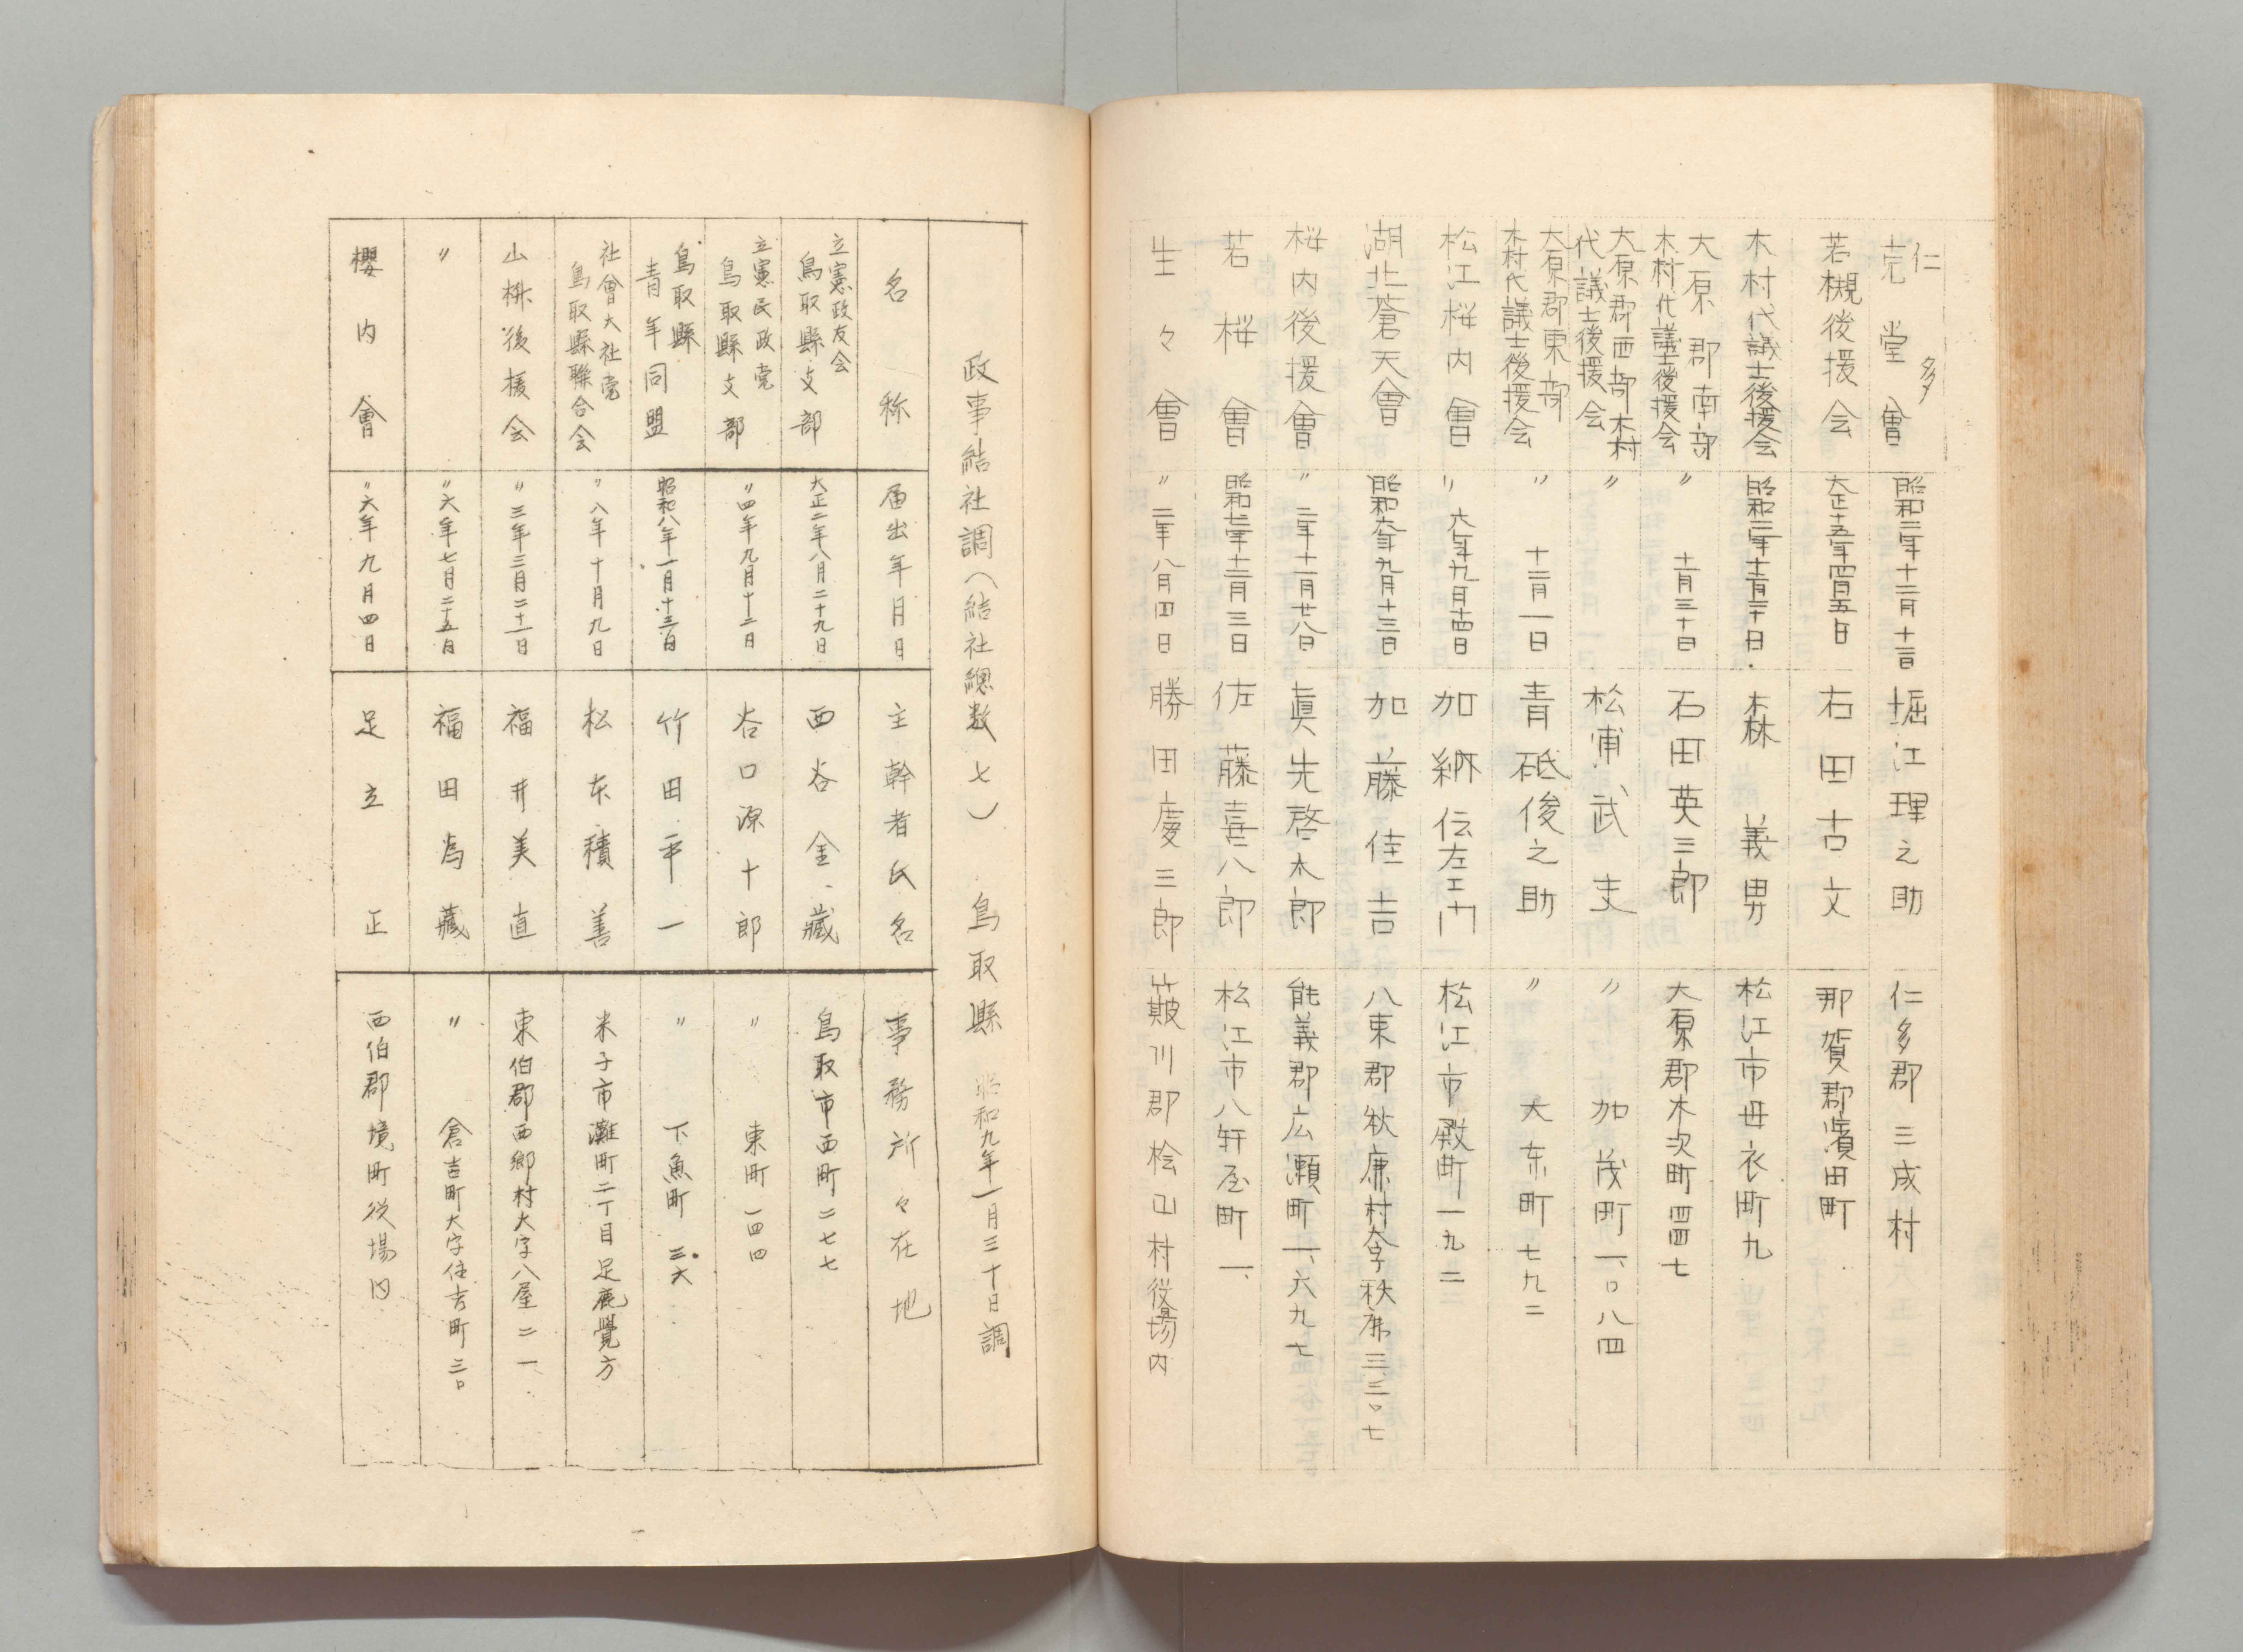 仁多
克堂會
昭和二年十二月十二日
堀江理之助
仁多郡三成村
若槻後援会
大正十五年四月五日
右田古文
那賀郡濱田町
木村代議士後援会
昭和三年十二月三十日
森義男
松江市母衣町九
大原郡南部
木村代議士後援会
〃 十二月三十日
石田英三郎
大原郡木次町四四七
大原郡西部木村
代議士後援会
〃
松浦武吏
〃 加茂町一、〇八四
大原郡東部
木村代議士後援会
〃 十二月一日
青砥俊之助
〃 大东町七九二
松江桜内會
〃 六年九月十四日
加納伝左エ門
松江市殿町一九二
湖北蒼天會
昭和六年九月十三日
加藤佳吉
八束郡秋鹿村大字秋鹿三、三〇七
桜内後援會
〃 二年十一月廿八日
眞先啓太郎
能義郡広瀬町一、六九七
若桜會
昭和七年十二月三日
佐藤喜八郎
松江市八軒屋町一、
生々會
〃 二年八月四日
勝田慶三郎
簸川郡桧山村役場内
政事結社調(結社總数七) 鳥取縣 昭和九年一月三十日調
名称
届出年月日
主幹者氏名
事務所々在地
立憲政友会
鳥取縣支部
大正二年八月二十九日
西谷金藏
鳥取市西町二七七
立憲民政党
鳥取縣支部
〃四年九月十二日
谷口源十郎
〃 東町一四四
鳥取縣
青年同盟
昭和八年一月十三日
竹田平一
〃 下魚町三六
社會大社党
鳥取縣聯合会
〃八年十月九日
松本積善
米子市灘町二丁目足鹿覺方
山桝後援会
〃三年三月二十一日
福井美直
東伯郡西郷村大字八屋二一
〃
〃六年七月二十五日
福田為藏
〃 倉吉町大字住吉町三〇
櫻内會
〃六年九月四日
足立正
西伯郡境町役場内